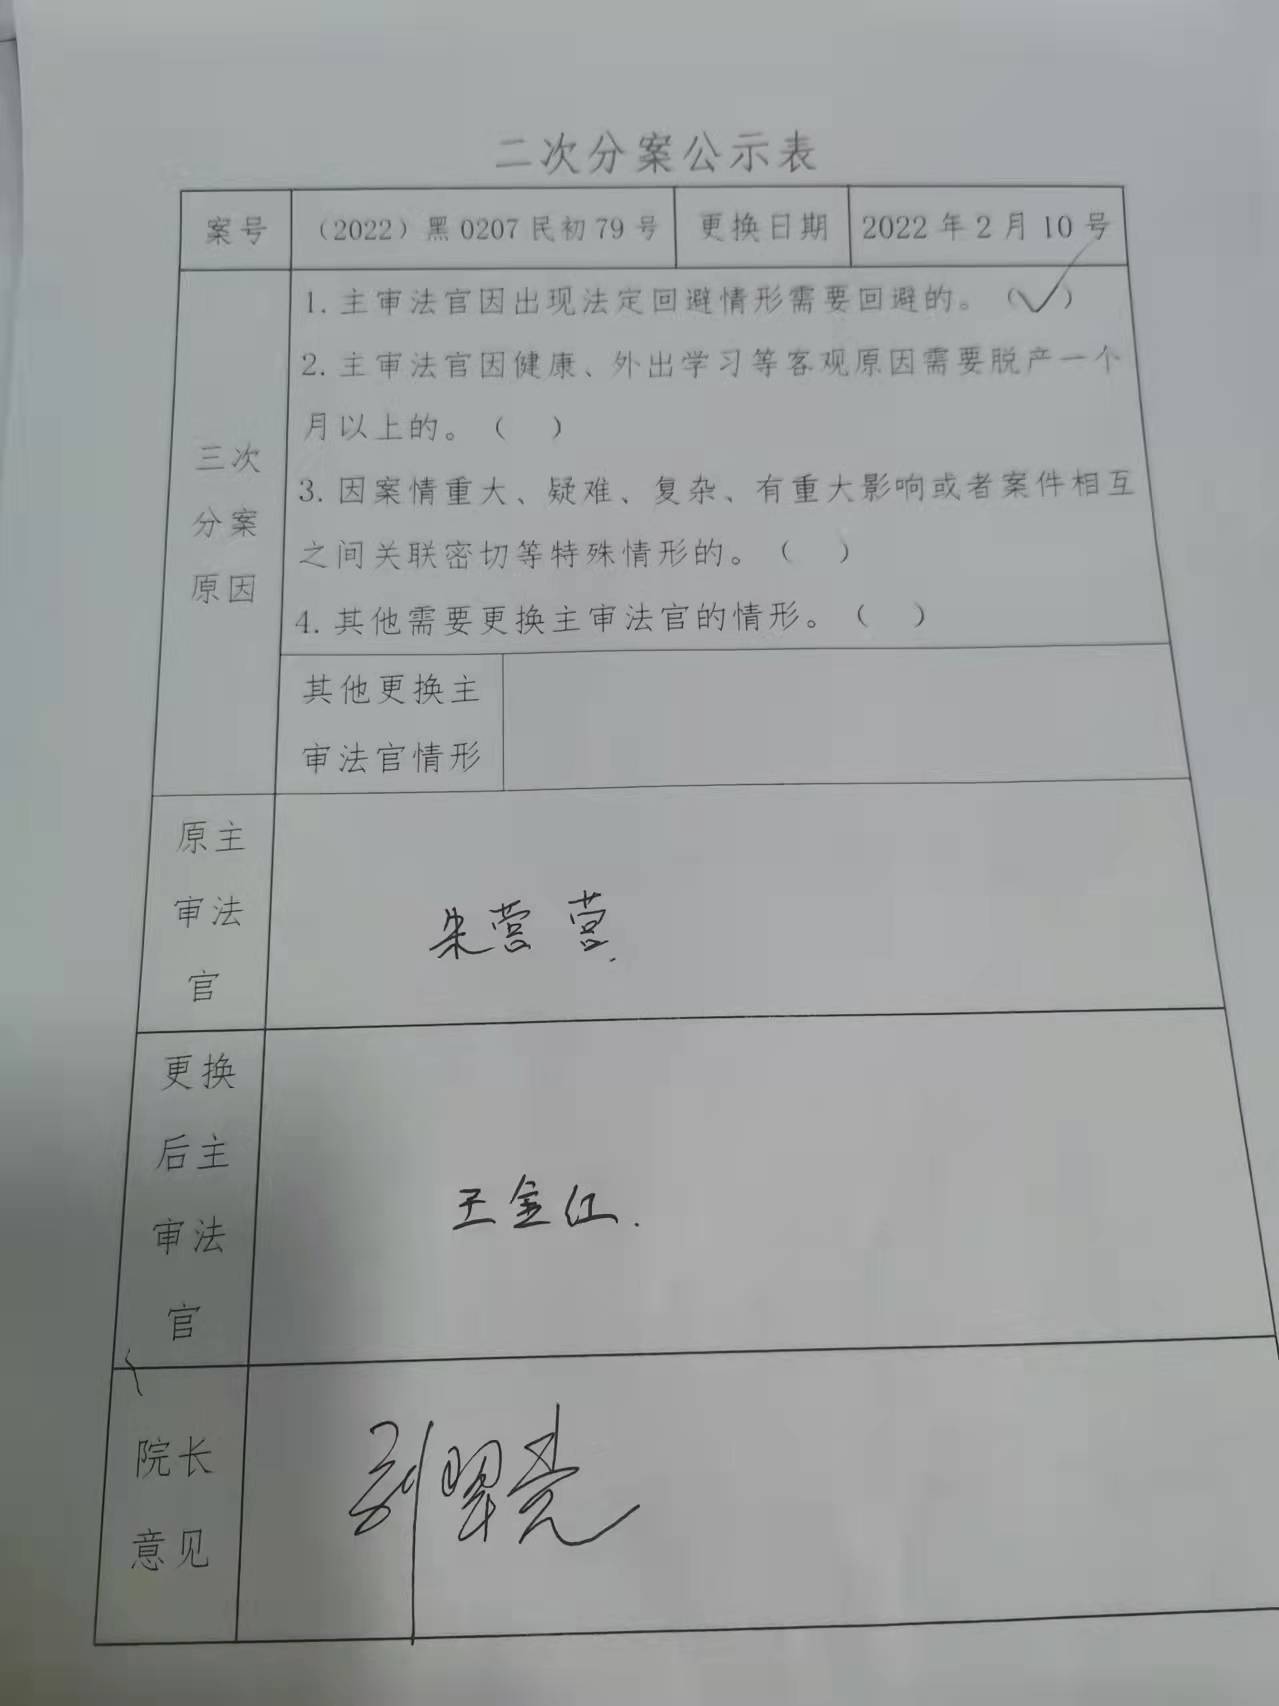 二次分案公示表
案号 （2022）黑0207民初79号 更换日期 2022年2月10号
三次
分案
原因
1.主审法官因出现法定回避情形需要回避的。（✓）
2.主审法官因健康、外出学习等客观原因需要脱产一个
月以上的。（ ）
3.因案情重大、疑难、复杂、有重大影响或者案件相互
之间关联密切等特殊情形的。（ ）
4.其他需要更换主审法官的情形。（ ）
其他更换主
审法官情形
原主
审法
官
朱营营
更换
后主
审法
官
王金红
院长
意见